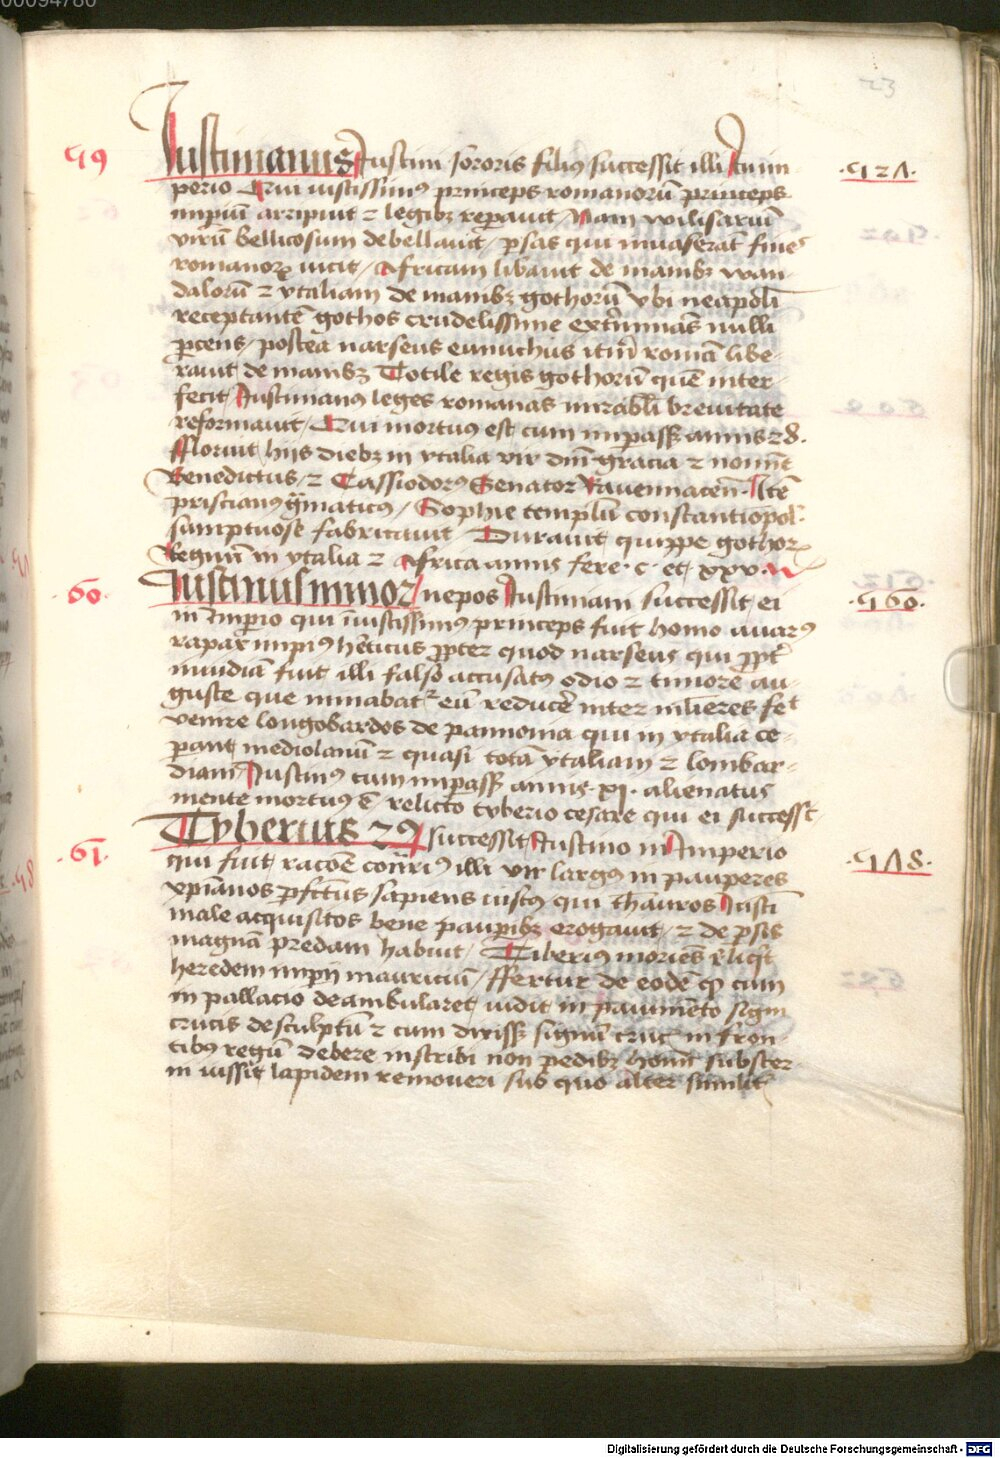 00094780
23
59
Iustinianus Iustini sororis filius successit illi in im
·527·
perio Qui iustissimus princeps romanorū princeps
imperiū arripiut ⁊ legibꝫ reꝑauit Nam wilisariū
virū bellicosum debellauit / ꝑsas qui inuaserāt fines
romanorꝝ uicit / Affricam libauit de manibꝫ wan
dalorū ⁊ ytaliam de manibꝫ gothorū vbi neapolī
receptantē gothos crudelissime extīminās nulli
ꝑcens / postea narseus eunuchus itm̄ romā libe-
rauit de manibꝫ Totile regis gothorū quē inter
fecit / Iustinianꝰ leges romanas mirabl̄i breuitate
reformauit / Qui mortuꝰ est cum impass; annis 28.
Floruit hijs diebꝫ in ytalia vir dni gracia ⁊ nomīe
Benedictus / ⁊ Cassiodorꝰ Senator Rauennaceñ. Itē
priscianus gmaticus / Sophie templū constantiopol
sumptuose fabricauit Durauit quippe gothorꝝ
Regnū in ytalia ⁊ Africa annis fere · c · et xxv
60·
Iustinus minor / nepos Iustiniani successit ei
·560·
in Imperio qui iustissimus princeps fuit homo auarꝰ
rapax impiꝰ hēticus ꝓpter quod narseus qui ꝓpt
inuidiā fuit illi falso accusatꝰ odio ⁊ timore au-
guste que minabat eū reducē inter mlieres fet
venire longobardos de pannonia qui in ytalia ce-
ꝑant mediolanū ⁊ quasi totā ytaliam ⁊ lombar-
diam Iustinꝰ cum impass; annis · xi · alienatus
mente mortuꝰ ē relicto tyberio cesare qui ei success
·61·
Tyberius 2⁹ / successit Iustino in Imperio
·578·
qui fuit racōe cont̄riꝰ illi vir largꝰ in pauperes
xpianos ꝑfctus sapiens iustꝰ qui thauros Iusti
male acquisitos bene pauꝑibꝫ erogauit / ⁊ de ꝑsis
magnā predam habuit / Tiberiꝰ moriēs rliqt
heredem impij mauriciū / Ffertur de eodē ꝙ cum
in pallacio deambularet / uidit in pauimēto signū
crucis desculptū ⁊ cum dixiss; signū cruc in fron
tibꝰ regū debere inscribi non pedibꝫ hom̄ subster
ni iussit lapidem remoueri sub quo alter similit
Digitalisierung gefördert durch die Deutsche Forschungsgemeinschaft - DFG